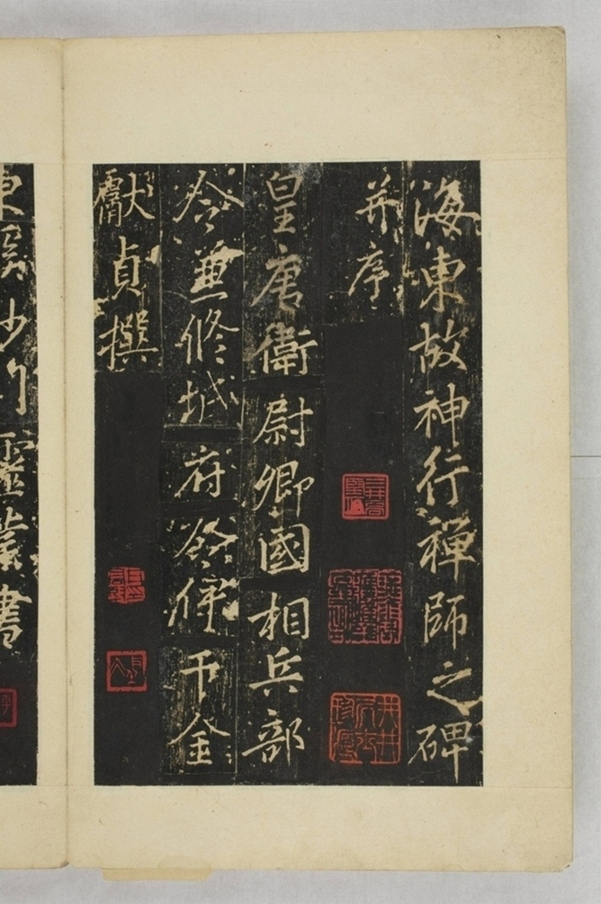 海東故神行禪師之碑
并序
皇唐衛尉卿國相兵部
令兼修城府令伊干金
獻貞撰
東溪沙門靈業書